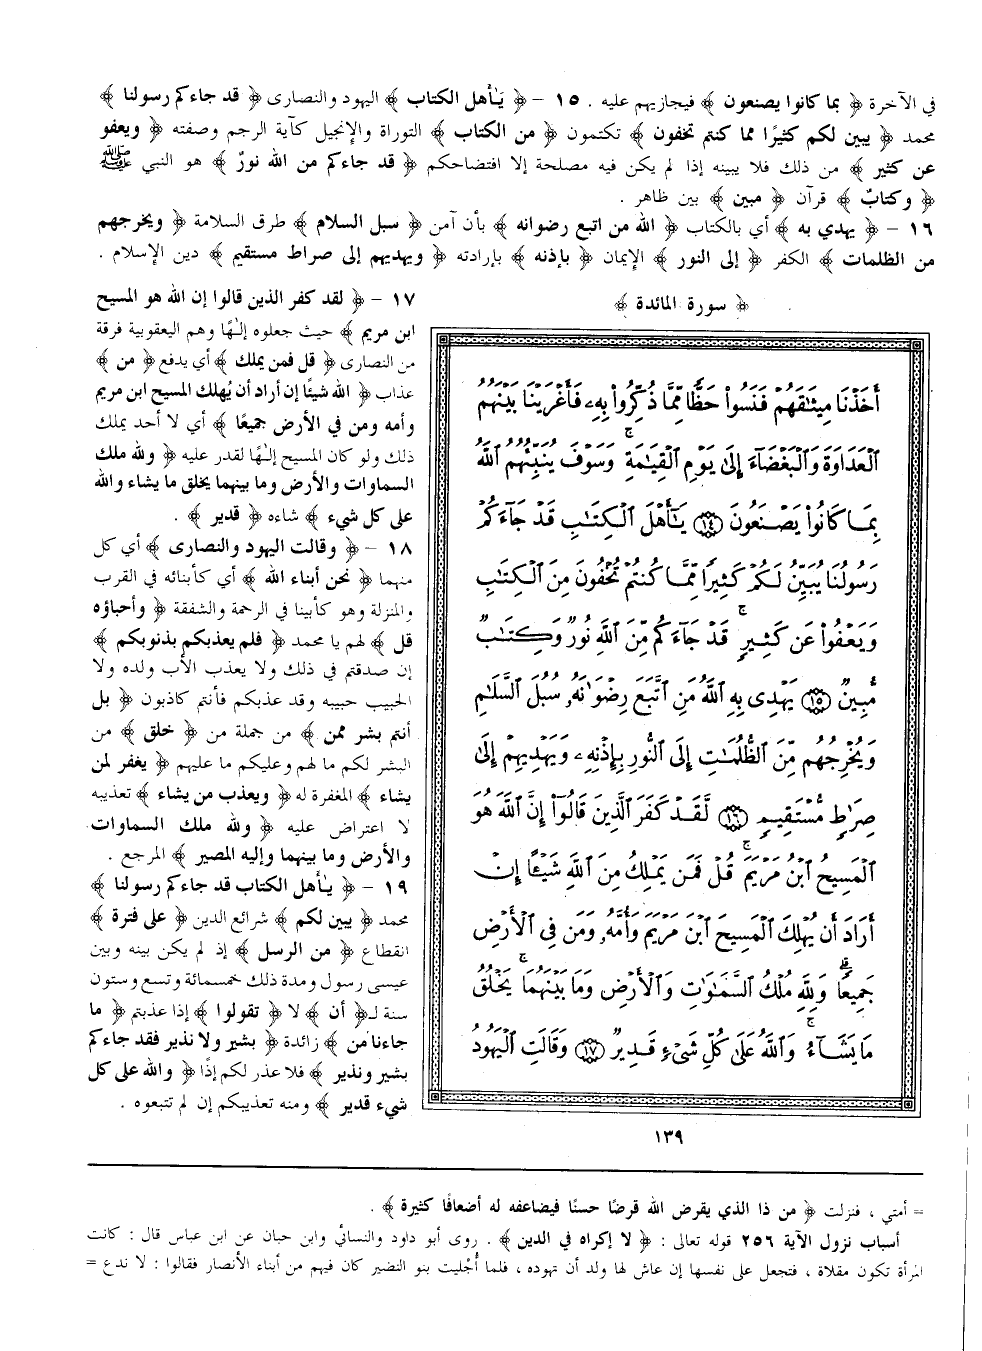 في الآخرة ﴿ بما كانوا يصنعون ﴾ فيجازيهم عليه . ١٥ - ﴿ يـٰأهل الكتاب ﴾ اليهود والنصارى ﴿ قد جاءكم رسولنا ﴾
محمد ﴿ يبين لكم كثيرًا مما كنتم تخفون ﴾ تكتمون ﴿ من الكتاب ﴾ التوراة والإنجيل كآية الرجم وصفته ﴿ ويعفو
عن كثير ﴾ من ذلك فلا يبينه إذا لم يكن فيه مصلحة إلا افتضاحكم ﴿ قد جاءكم من الله نورٌ ﴾ هو النبي ﷺ
﴿ وكتابٌ ﴾ قرآن ﴿ مبين ﴾ بين ظاهر .
١٦ - ﴿ يهدي به ﴾ أي بالكتاب ﴿ الله من اتبع رضوانه ﴾ بأن آمن ﴿ سبل السلام ﴾ طرق السلامة ﴿ ويخرجهم
من الظلمات ﴾ الكفر ﴿ إلى النور ﴾ الإيمان ﴿ بإذنه ﴾ بإرادته ﴿ ويهديهم إلى صراط مستقيم ﴾ دين الإسلام .
﴿ سورة المائدة ﴾
أَخَذْنَا مِيثَٰقَهُمْ فَنَسُوا۟ حَظًّا مِّمَّا ذُكِّرُوا۟ بِهِۦ فَأَغْرَيْنَا بَيْنَهُمُ
ٱلْعَدَاوَةَ وَٱلْبَغْضَآءَ إِلَىٰ يَوْمِ ٱلْقِيَٰمَةِ ۚ وَسَوْفَ يُنَبِّئُهُمُ ٱللَّهُ
بِمَا كَانُوا۟ يَصْنَعُونَ ١٤ يَٰٓأَهْلَ ٱلْكِتَٰبِ قَدْ جَآءَكُمْ
رَسُولُنَا يُبَيِّنُ لَكُمْ كَثِيرًا مِّمَّا كُنتُمْ تُخْفُونَ مِنَ ٱلْكِتَٰبِ
وَيَعْفُوا۟ عَن كَثِيرٍ ۚ قَدْ جَآءَكُم مِّنَ ٱللَّهِ نُورٌ وَكِتَٰبٌ
مُّبِينٌ ١٥ يَهْدِى بِهِ ٱللَّهُ مَنِ ٱتَّبَعَ رِضْوَٰنَهُۥ سُبُلَ ٱلسَّلَٰمِ
وَيُخْرِجُهُم مِّنَ ٱلظُّلُمَٰتِ إِلَى ٱلنُّورِ بِإِذْنِهِۦ وَيَهْدِيهِمْ إِلَىٰ
صِرَٰطٍ مُّسْتَقِيمٍ ١٦ لَّقَدْ كَفَرَ ٱلَّذِينَ قَالُوٓا۟ إِنَّ ٱللَّهَ هُوَ
ٱلْمَسِيحُ ٱبْنُ مَرْيَمَ ۚ قُلْ فَمَن يَمْلِكُ مِنَ ٱللَّهِ شَيْـًٔا إِنْ
أَرَادَ أَن يُهْلِكَ ٱلْمَسِيحَ ٱبْنَ مَرْيَمَ وَأُمَّهُۥ وَمَن فِى ٱلْأَرْضِ
جَمِيعًا ۗ وَلِلَّهِ مُلْكُ ٱلسَّمَٰوَٰتِ وَٱلْأَرْضِ وَمَا بَيْنَهُمَا ۚ يَخْلُقُ
مَا يَشَآءُ ۚ وَٱللَّهُ عَلَىٰ كُلِّ شَىْءٍ قَدِيرٌ ١٧ وَقَالَتِ ٱلْيَهُودُ
١٣٩
١٧ - ﴿ لقد كفر الذين قالوا إن الله هو المسيح
ابن مريم ﴾ حيث جعلوه إلـٰهًا وهم اليعقوبية فرقة
من النصارى ﴿ قل فمن يملك ﴾ أي يدفع ﴿ من ﴾
عذاب ﴿ الله شيئًا إن أراد أن يُهلك المسيح ابن مريم
وأمه ومن في الأرض جميعًا ﴾ أي لا أحد يملك
ذلك ولو كان المسيح إلـٰهًا لقدر عليه ﴿ ولله ملك
السماوات والأرض وما بينهما يخلق ما يشاء والله
على كل شيء ﴾ شاءه ﴿ قدير ﴾ .
١٨ - ﴿ وقالت اليهود والنصارى ﴾ أي كل
منهما ﴿ نحن أبناء الله ﴾ أي كأبنائه في القرب
والمنزلة وهو كأبينا في الرحمة والشفقة ﴿ وأحباؤه
قل ﴾ لهم يا محمد ﴿ فلم يعذبكم بذنوبكم ﴾
إن صدقتم في ذلك ولا يعذب الأب ولده ولا
الحبيب حبيبه وقد عذبكم فأنتم كاذبون ﴿ بل
أنتم بشر ممن ﴾ من جملة من ﴿ خلق ﴾ من
البشر لكم ما لهم وعليكم ما عليهم ﴿ يغفر لمن
يشاء ﴾ المغفرة له ﴿ ويعذب من يشاء ﴾ تعذيبه
لا اعتراض عليه ﴿ ولله ملك السماوات
والأرض وما بينهما وإليه المصير ﴾ المرجع .
١٩ - ﴿ يـٰأهل الكتاب قد جاءكم رسولنا ﴾
محمد ﴿ يبين لكم ﴾ شرائع الدين ﴿ على فترة ﴾
انقطاع ﴿ من الرسل ﴾ إذ لم يكن بينه وبين
عيسى رسول ومدة ذلك خمسمائة وتسع وستون
سنة لـ ﴿ أن ﴾ لا ﴿ تقولوا ﴾ إذا عذبتم ﴿ ما
جاءنا من ﴾ زائدة ﴿ بشير ولا نذير فقد جاءكم
بشير ونذير ﴾ فلا عذر لكم إذًا ﴿ والله على كل
شيء قدير ﴾ ومنه تعذيبكم إن لم تتبعوه .
= أمتي ، فنزلت ﴿ من ذا الذي يقرض الله قرضًا حسنًا فيضاعفه له أضعافًا كثيرة ﴾ .
أسباب نزول الآية ٢٥٦ قوله تعالى : ﴿ لا إكراه في الدين ﴾ . روى أبو داود والنسائي وابن حبان عن ابن عباس قال : كانت
المرأة تكون مقلاة ، فتجعل على نفسها إن عاش لها ولد أن تهوده ، فلما أُجليت بنو النضير كان فيهم من أبناء الأنصار فقالوا : لا ندع =